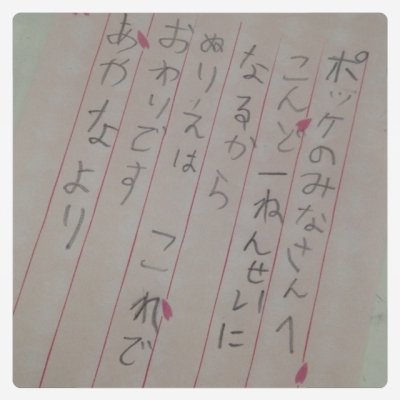 ポッケのみなさんへ
こんど一ねんせいに
なるから
ぬりえは これで
おわりです
あやなより